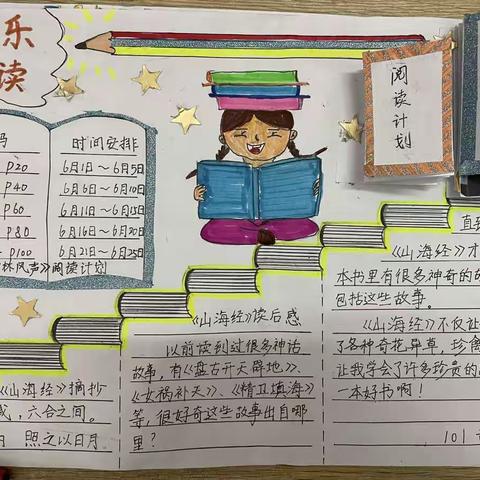 乐
读
阅读计划
时间安排
P20 6月1日～6月5日
P40 6月6日～6月10日
P60 6月11日～6月15日
P80 6月16日～6月20日
P100 6月21日～6月25日
林风声》阅读计划
《山海经》摘抄
，六合之间。
照之以日月
《山海经》读后感
以前读到过很多神话
故事，有《盘古开天辟地》、
《女祸补天》、《精卫填海》
等，很好奇这些故事出自哪
里？
直到
《山海经》才
本书里有很多神奇的故
包括这些故事。
《山海经》不仅让
了各种奇花异草，珍禽
让我学会了许多珍贵的
一本好书啊！
101